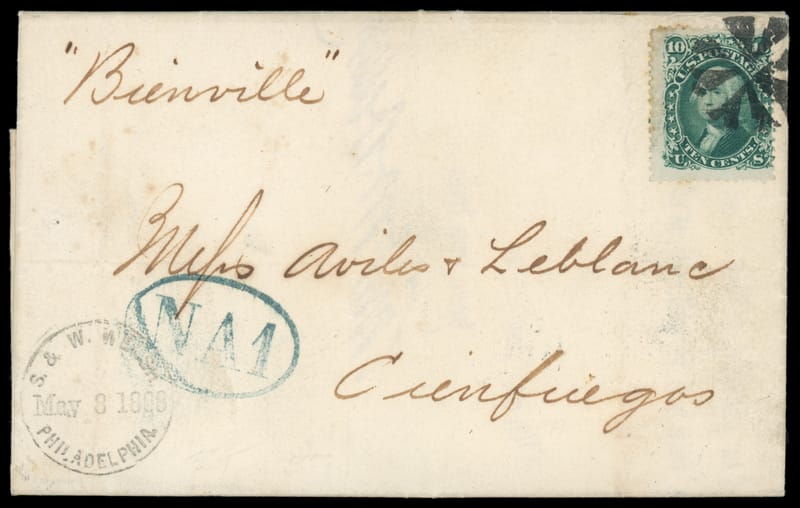 "Bienville"
10
U.S. POSTAGE
TEN CENTS.
U S
Mess Aviles & Leblanc
NA1
S. & W. WELSH
May 8 1868
PHILADELPHIA.
Cienfuegos